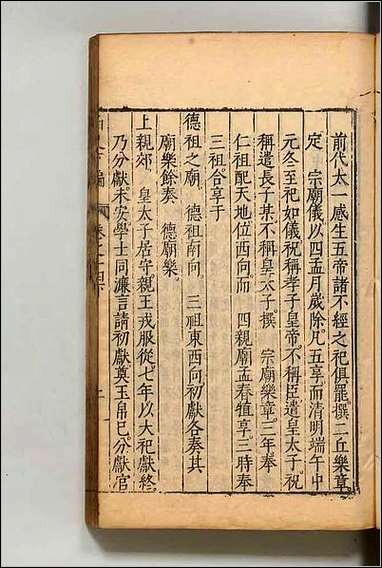 前代太一感生五帝諸不經之祀俱罷撰二丘樂章
定　宗廟儀以四孟月歲除凡五享而清明端午中
元冬至祀如儀祝稱孝子皇帝不稱臣遣皇太子祝
稱遣長子某不稱皇太子撰　宗廟樂章三年奉
仁祖配天地位西向而　四親廟孟春犆享三時奉
三祖合享于
德祖之廟　德祖南向　三祖東西向初獻各奏其
廟樂餘奏　德廟樂
上親郊　皇太子居守親王戎服從七年以大祀獻終
乃分獻未安學士同濂言請初獻奠玉帛已分獻官